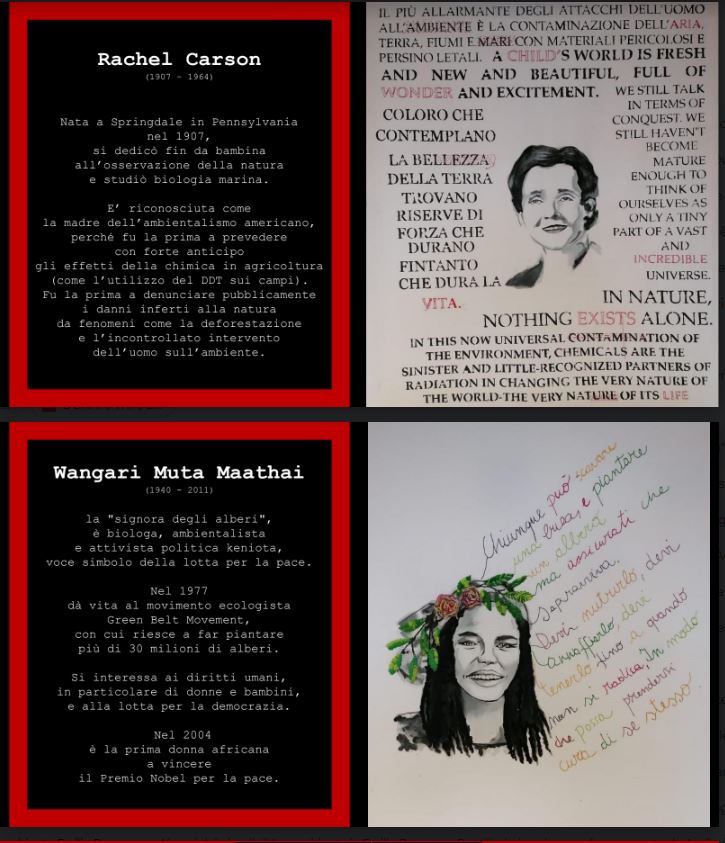 Rachel Carson
(1907 - 1964)
Nata a Springdale in Pennsylvania
nel 1907,
si dedicò fin da bambina
all'osservazione della natura
e studiò biologia marina.
E' riconosciuta come
la madre dell'ambientalismo americano,
perché fu la prima a prevedere
con forte anticipo
gli effetti della chimica in agricoltura
(come l'utilizzo del DDT sui campi).
Fu la prima a denunciare pubblicamente
i danni inferti alla natura
da fenomeni come la deforestazione
e l'incontrollato intervento
dell'uomo sull'ambiente.
IL PIÙ ALLARMANTE DEGLI ATTACCHI DELL'UOMO
ALL'AMBIENTE È LA CONTAMINAZIONE DELL'ARIA,
TERRA, FIUMI E MARI CON MATERIALI PERICOLOSI E
PERSINO LETALI. A CHILD'S WORLD IS FRESH
AND NEW AND BEAUTIFUL, FULL OF
WONDER AND EXCITEMENT.
COLORO CHE
CONTEMPLANO
LA BELLEZZA
DELLA TERRA
TROVANO
RISERVE DI
FORZA CHE
DURANO
FINTANTO
CHE DURA LA
VITA.
WE STILL TALK
IN TERMS OF
CONQUEST. WE
STILL HAVEN'T
BECOME
MATURE
ENOUGH TO
THINK OF
OURSELVES AS
ONLY A TINY
PART OF A VAST
AND
INCREDIBLE
UNIVERSE.
IN NATURE,
NOTHING EXISTS ALONE.
IN THIS NOW UNIVERSAL CONTAMINATION OF
THE ENVIRONMENT, CHEMICALS ARE THE
SINISTER AND LITTLE-RECOGNIZED PARTNERS OF
RADIATION IN CHANGING THE VERY NATURE OF
THE WORLD-THE VERY NATURE OF ITS LIFE
Wangari Muta Maathai
(1940 - 2011)
la "signora degli alberi",
è biologa, ambientalista
e attivista politica keniota,
voce simbolo della lotta per la pace.
Nel 1977
dà vita al movimento ecologista
Green Belt Movement,
con cui riesce a far piantare
più di 30 milioni di alberi.
Si interessa ai diritti umani,
in particolare di donne e bambini,
e alla lotta per la democrazia.
Nel 2004
è la prima donna africana
a vincere
il Premio Nobel per la pace.
Chiunque può scavare
una buca, e piantare
un albero
ma assicurati che
sopravviva.
Devi nutrirlo, devi
annaffiarlo, devi
tenerlo fino a quando
non si radica, In modo
che possa prendersi
cura di se stesso.